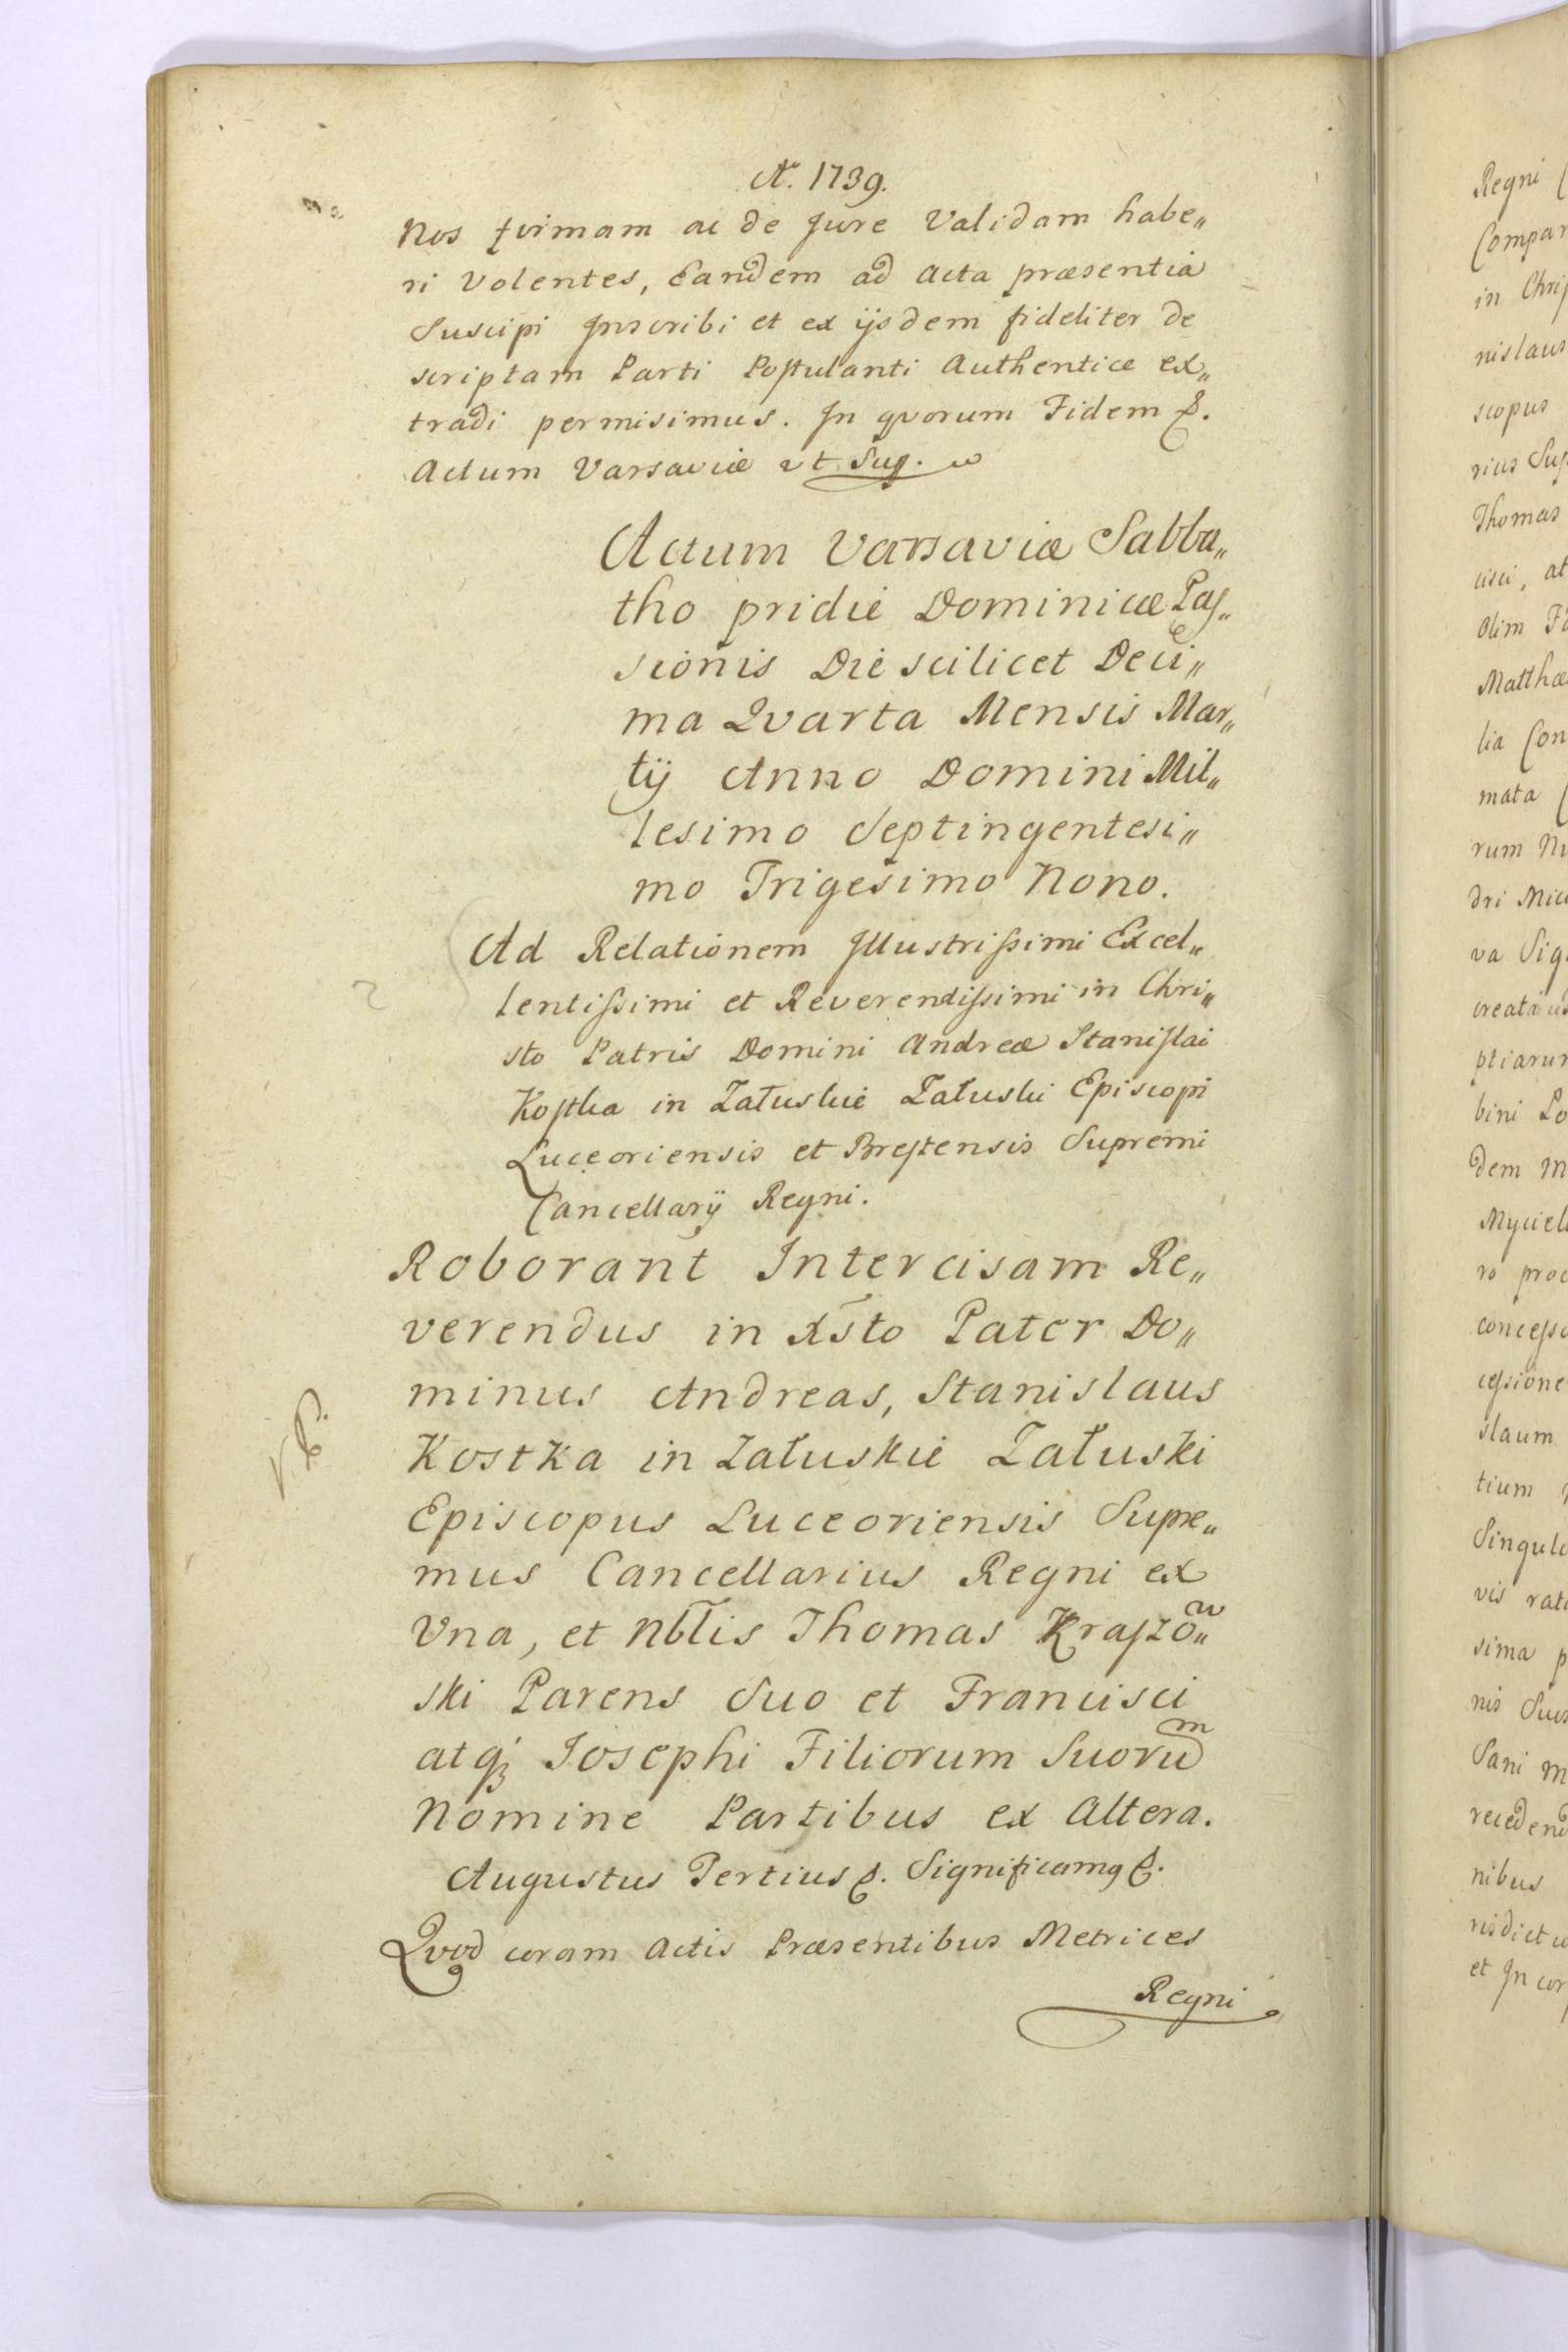 A. 1739.
Nos firmam ac de Jure Validam habe„
ri Volentes, Eandem ad Acta præsentia
Suscipi Inscribi et ex ijsdem fideliter de
scriptam Parti Postulanti Authentice ex„
tradi permisimus. In qvorum Fidem &.
Actum Varsaviæ ut Sup.
Actum Varsaviæ Sabba„
tho pridie Dominicæ Pas„
sionis Die scilicet Deci„
ma Qvarta Mensis Mar„
tij Anno Domini Mil„
lesimo Septingentesi„
mo Trigesimo Nono.
Ad Relationem Illustrissimi Excel„
lentissimi et Reverendissimi in Chri„
sto Patris Domini Andreæ Stanislai
Kostka in Załuskie Załuski Episcopi
Luceoriensis et Brestensis Supremi
Cancellarij Regni.
Roborant Intercisam Re„
verendus in Xsto Pater Do„
minus Andreas, Stanislaus
Kostka in Załuskie Załuski
Episcopus Luceoriensis Supre„
mus Cancellarius Regni ex
Una, et Nblis Thomas Kraszow„
ski Parens Suo et Francisci
atq3 Josephi Filiorum Suorum
Nomine Partibus ex Altera.
Augustus Tertius &. Significamq &.
Qvod coram Actis Præsentibus Metrices
Regni
Regni
Compar
in Chris
nislaus
scopus
rius Sup
Thomas
cisci, at
Olim
Matthæ
lia Con
mata
rum
dri
va Sig
creata
ptiarum
bini
dem
Myciel
ro proc
concesso
cessione
slaum
tium
Singulo
vis rat
sima
nis Suis
Sani
recedend
nibus
risdict
et Incor